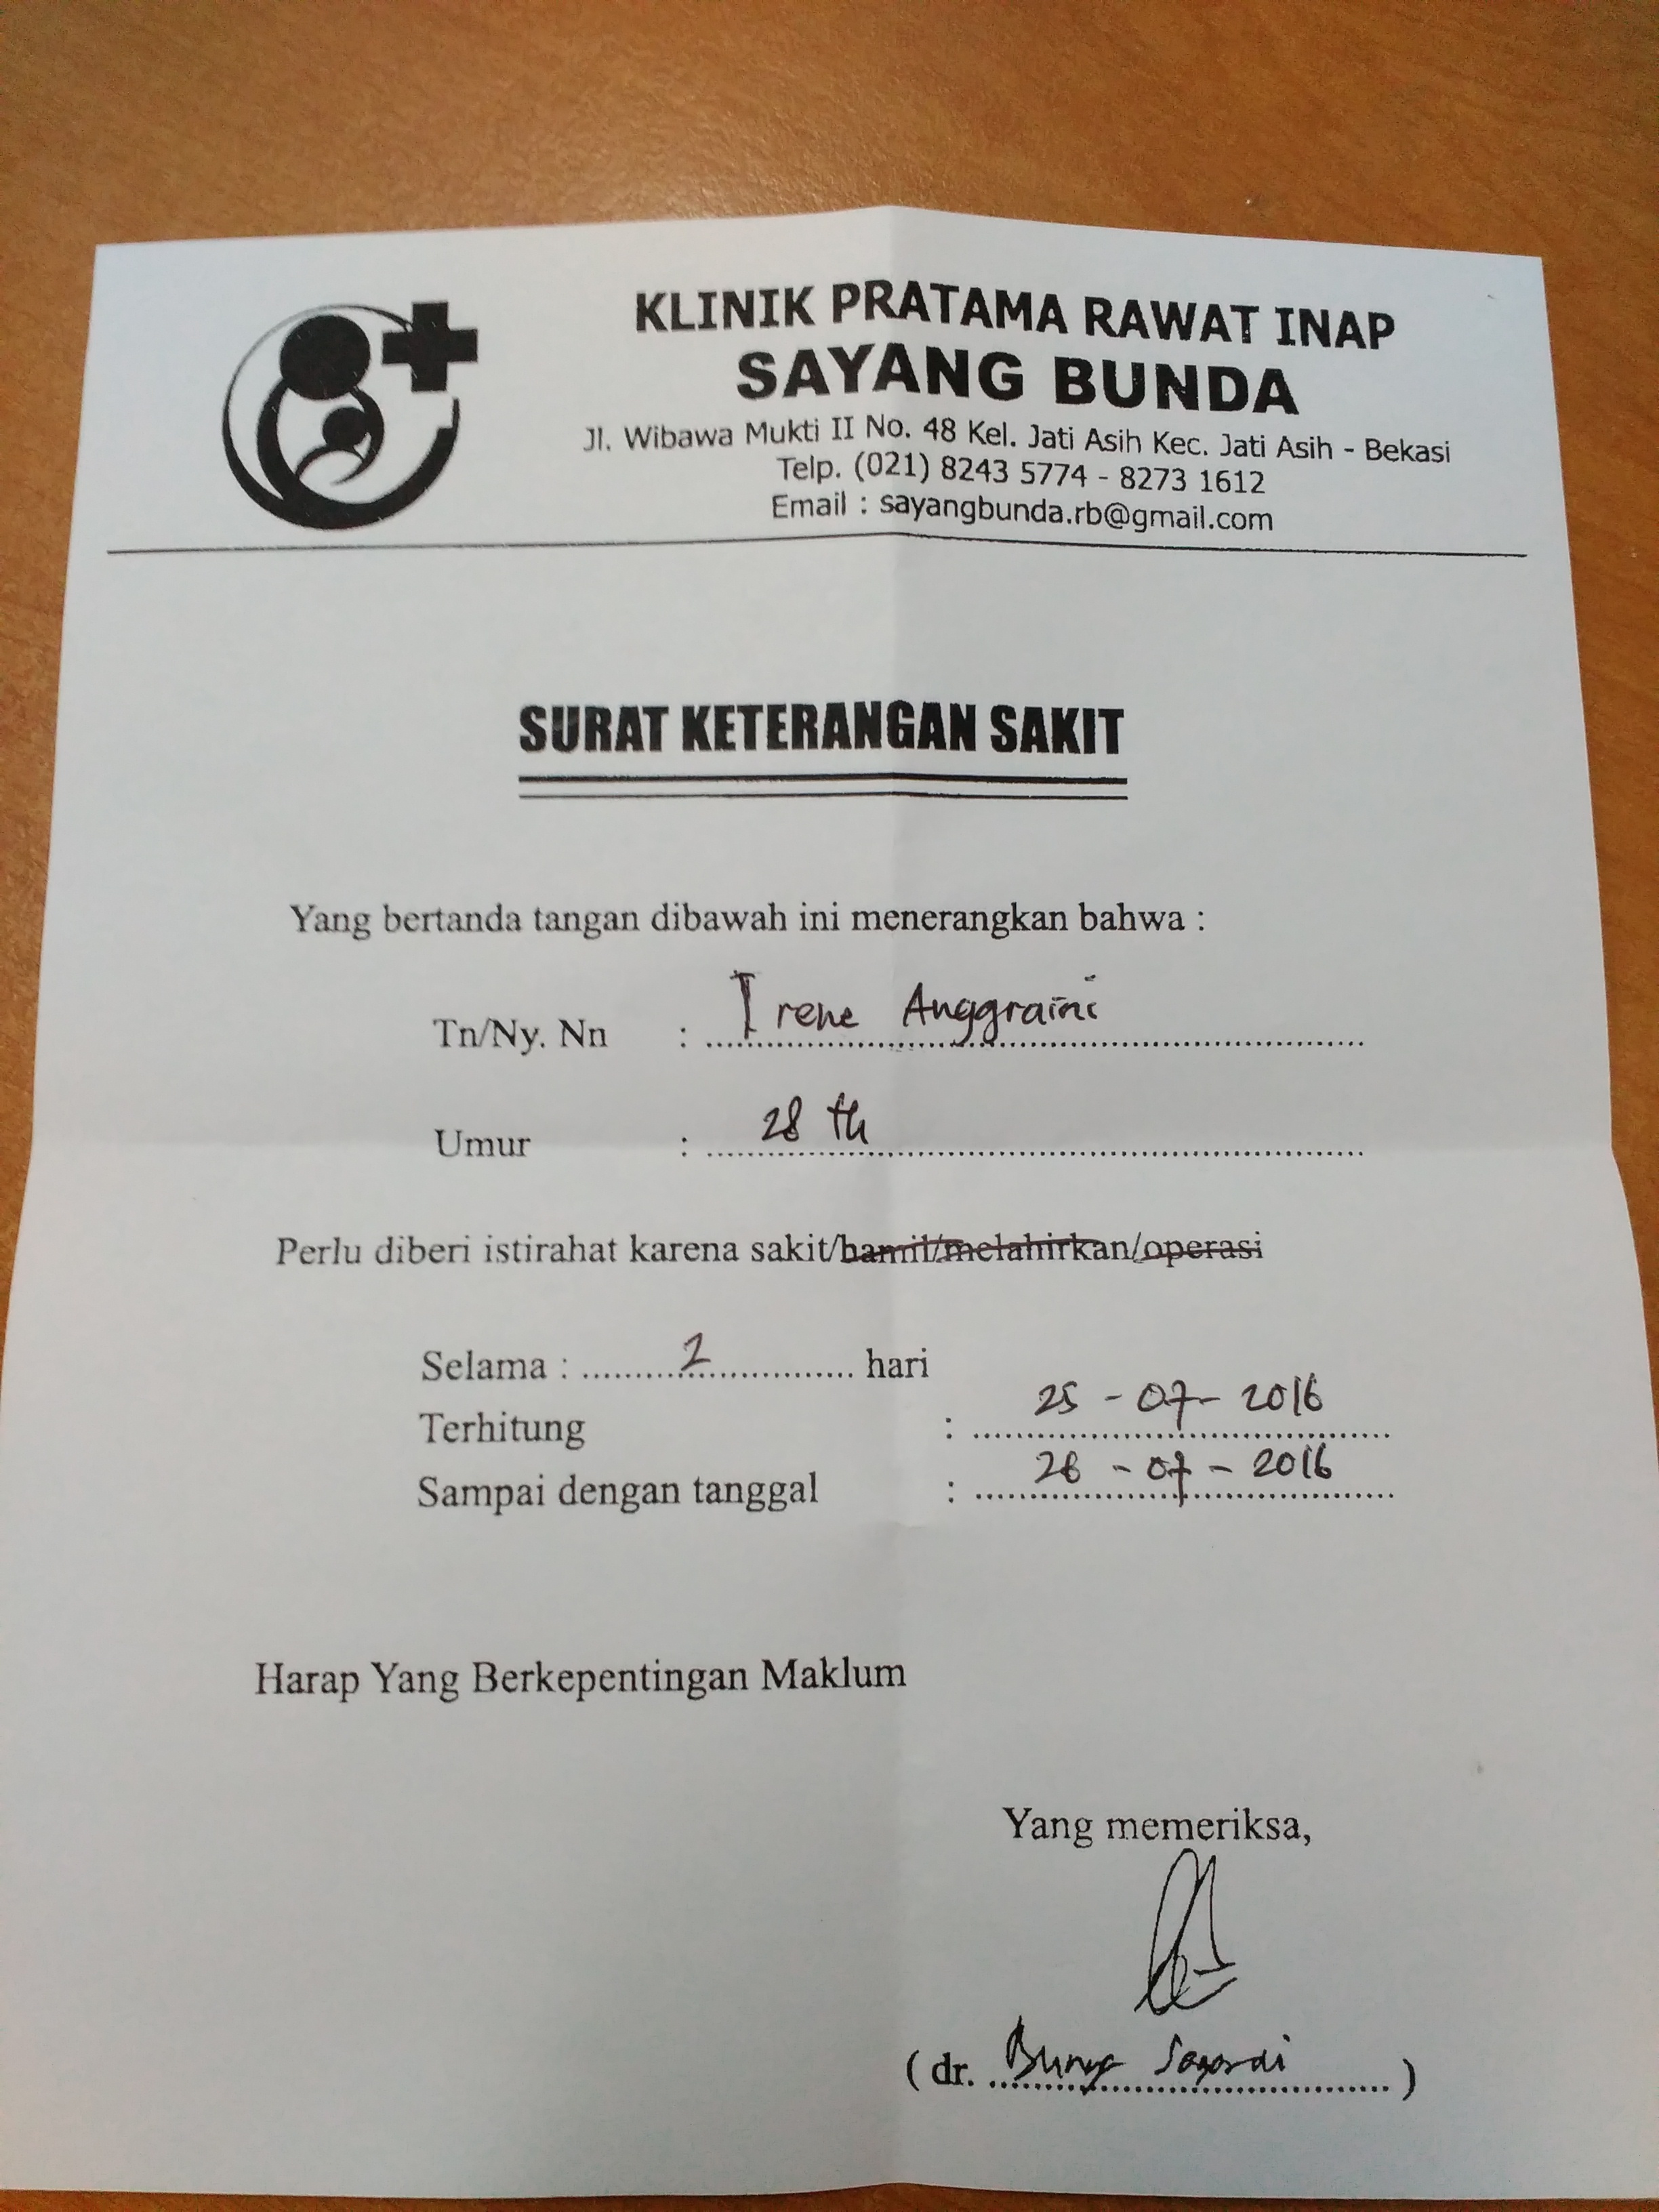 KLINIK PRATAMA RAWAT INAP
SAYANG BUNDA
Jl. Wibawa Mukti II No. 48 Kel. Jati Asih Kec. Jati Asih - Bekasi
Telp. (021) 8243 5774 - 8273 1612
Email : sayangbunda.rb@gmail.com
SURAT KETERANGAN SAKIT
Yang bertanda tangan dibawah ini menerangkan bahwa :
Tn/Ny. Nn : Irene Anggraini
Umur : 28 th
Perlu diberi istirahat karena sakit/hamil/melahirkan/operasi
Selama : 2 hari
Terhitung : 25 - 07 - 2016
Sampai dengan tanggal : 26 - 07 - 2016
Harap Yang Berkepentingan Maklum
Yang memeriksa,
( dr. Bunga )